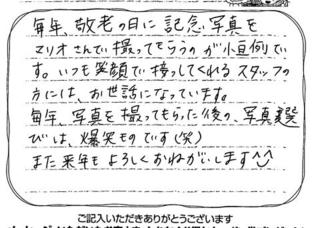 毎年、敬老の日に記念写真を
マリオさんで撮ってもらうのが恒例で
す。いつも笑顔で接してくれるスタッフの
方には、お世話になっています。
毎年、写真を撮ってもらった後の、写真選
びは、爆笑ものです(笑)
また来年もよろしくおねがいします^^
ご記入いただきありがとうございます